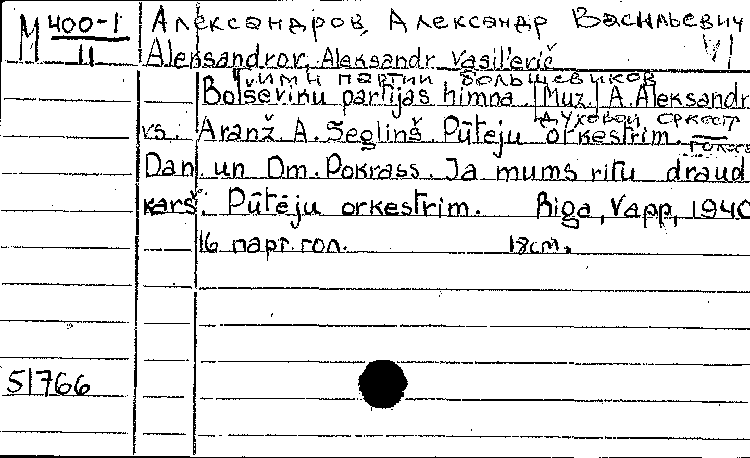 M 400-1 Александров, Александр Васильевич
11 Aleksandrov, Aleksandr Vasil'evič VI
Гимн партии большевиков
Boļševiku partijas himna. [Muz.] A. Aleksandr
духовой оркестр
vs. Aranž. A. Segliņš. Pūtēju orkestrim.
голоса
Dan. un Dm. Pokrass. Ja mums rītu draud
karš. Pūtēju orkestrim. Rīga, Vapp, 1940
16 парт. гол. 18cm.
51766